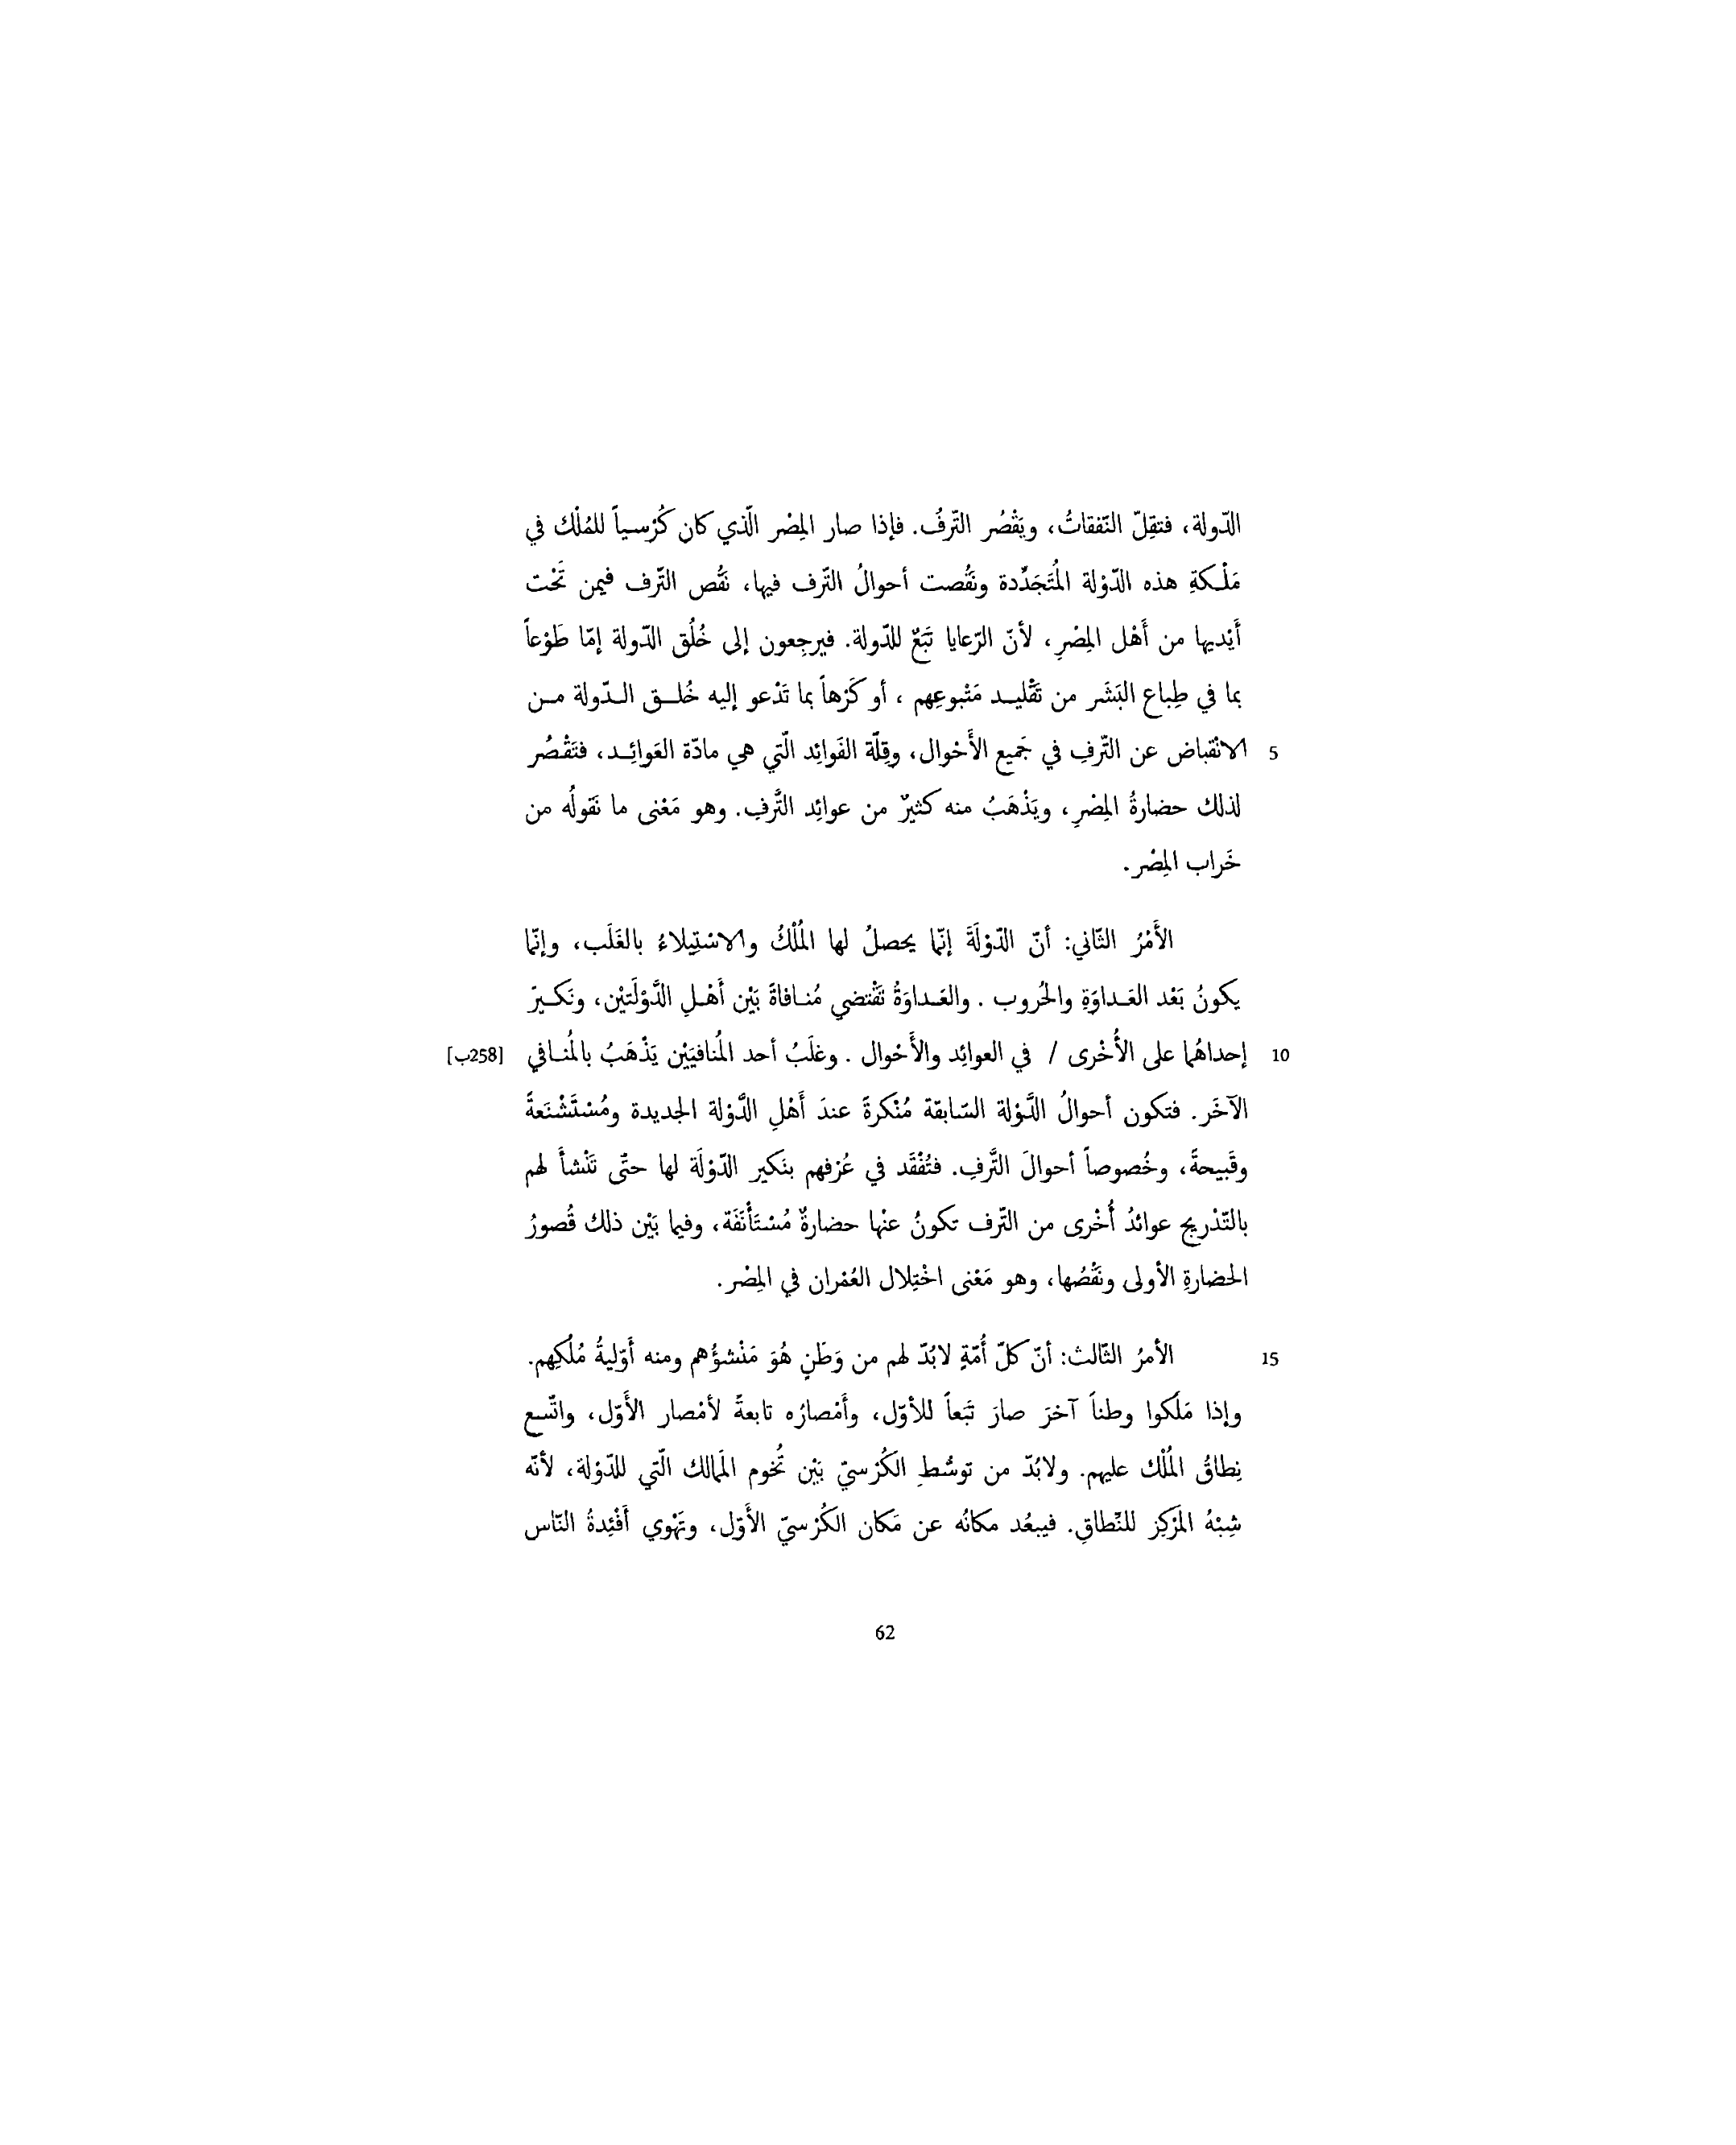 الدّولة، فتقِلّ النّفقاتُ، ويَقْصُر التّرفُ. فإذا صار المِصْر الّذي كان كُرْسياً للمُلْك في
مَلْكةِ هذه الدّوْلة المُتَجَدِّدة ونَقُصت أحوالُ التّرف فيها، نَقُص التّرف فيمن تَحْت
أَيْديها من أَهْل المِصْرِ، لأنّ الرّعايا تَبَعٌ للدّولة. فيرجِعون إلى خُلُق الدّولة إمّا طَوْعاً
بما في طِباع البَشَر من تَقْليد مَتْبوعِهم، أو كَرْهاً بما تَدْعو إليه خُلق الدّولة من
5 الانْقباض عن التّرفِ في جَميع الأَحْوال، وقِلّة الفَوائِد الّتي هي مادّة العَوائِد، فتَقْصُر
لذلك حضارةُ المِصْرِ، ويَذْهَبُ منه كثيرٌ من عوائِد التَّرفِ. وهو مَعْنى ما نَقولُه من
خَراب المِصْر.
الأَمْرُ الثّاني: أنّ الدّوْلَةَ إنّما يحصلُ لها المُلْكُ والاسْتِيلاءُ بالغَلَب، وإنّما
يكونُ بَعْد العَداوَةِ والحُروب. والعَداوَةُ تَقْتضي مُنافاةً بَيْن أَهْلِ الدَّوْلَتَيْن، ونَكيرَ
10 إحداهُما على الأُخْرى / في العوائِد والأَحْوال. وغلَبُ أحد المُنافيَيْن يَذْهَبُ بالمُنافي [258ب]
الآخَر. فتكون أحوالُ الدَّوْلة السّابقة مُنْكرةً عندَ أَهْلِ الدَّوْلة الجديدة ومُسْتَشْنَعةً
وقَبيحةً، وخُصوصاً أحوالَ التَّرفِ. فتُفْقَد في عُرْفهم بنَكير الدّوْلَة لها حتّى تَنْشأَ لهم
بالتّدْريج عوائدُ أُخْرى من التّرف تكونُ عنْها حضارةٌ مُسْتَأْنَفَة، وفيما بَيْن ذلك قُصورُ
الحضارةِ الأولى ونَقْصُها، وهو مَعْنى اخْتِلال العُمْران في المِصْر.
15 الأمرُ الثّالث: أنّ كلّ أُمّةٍ لابُدّ لهم من وَطَنٍ هُوَ مَنْشؤُهم ومنه أَوّليةُ مُلْكِهم.
وإذا مَلَكوا وطناً آخرَ صارَ تَبَعاً للأوّل، وأَمْصارُه تابعةً لأمْصار الأَوّل، واتّسع
نِطاقُ المُلْك عليهم. ولابُدّ من توسُّطِ الكُرْسيّ بَيْن تُخوم المَمالك الّتي للدّوْلة، لأنّه
شِبْهُ المَرْكِز للنِّطاقِ. فيبعُد مكانُه عن مَكان الكُرْسيّ الأَوّل، وتَهْوي أَفْئِدةُ النّاس
62